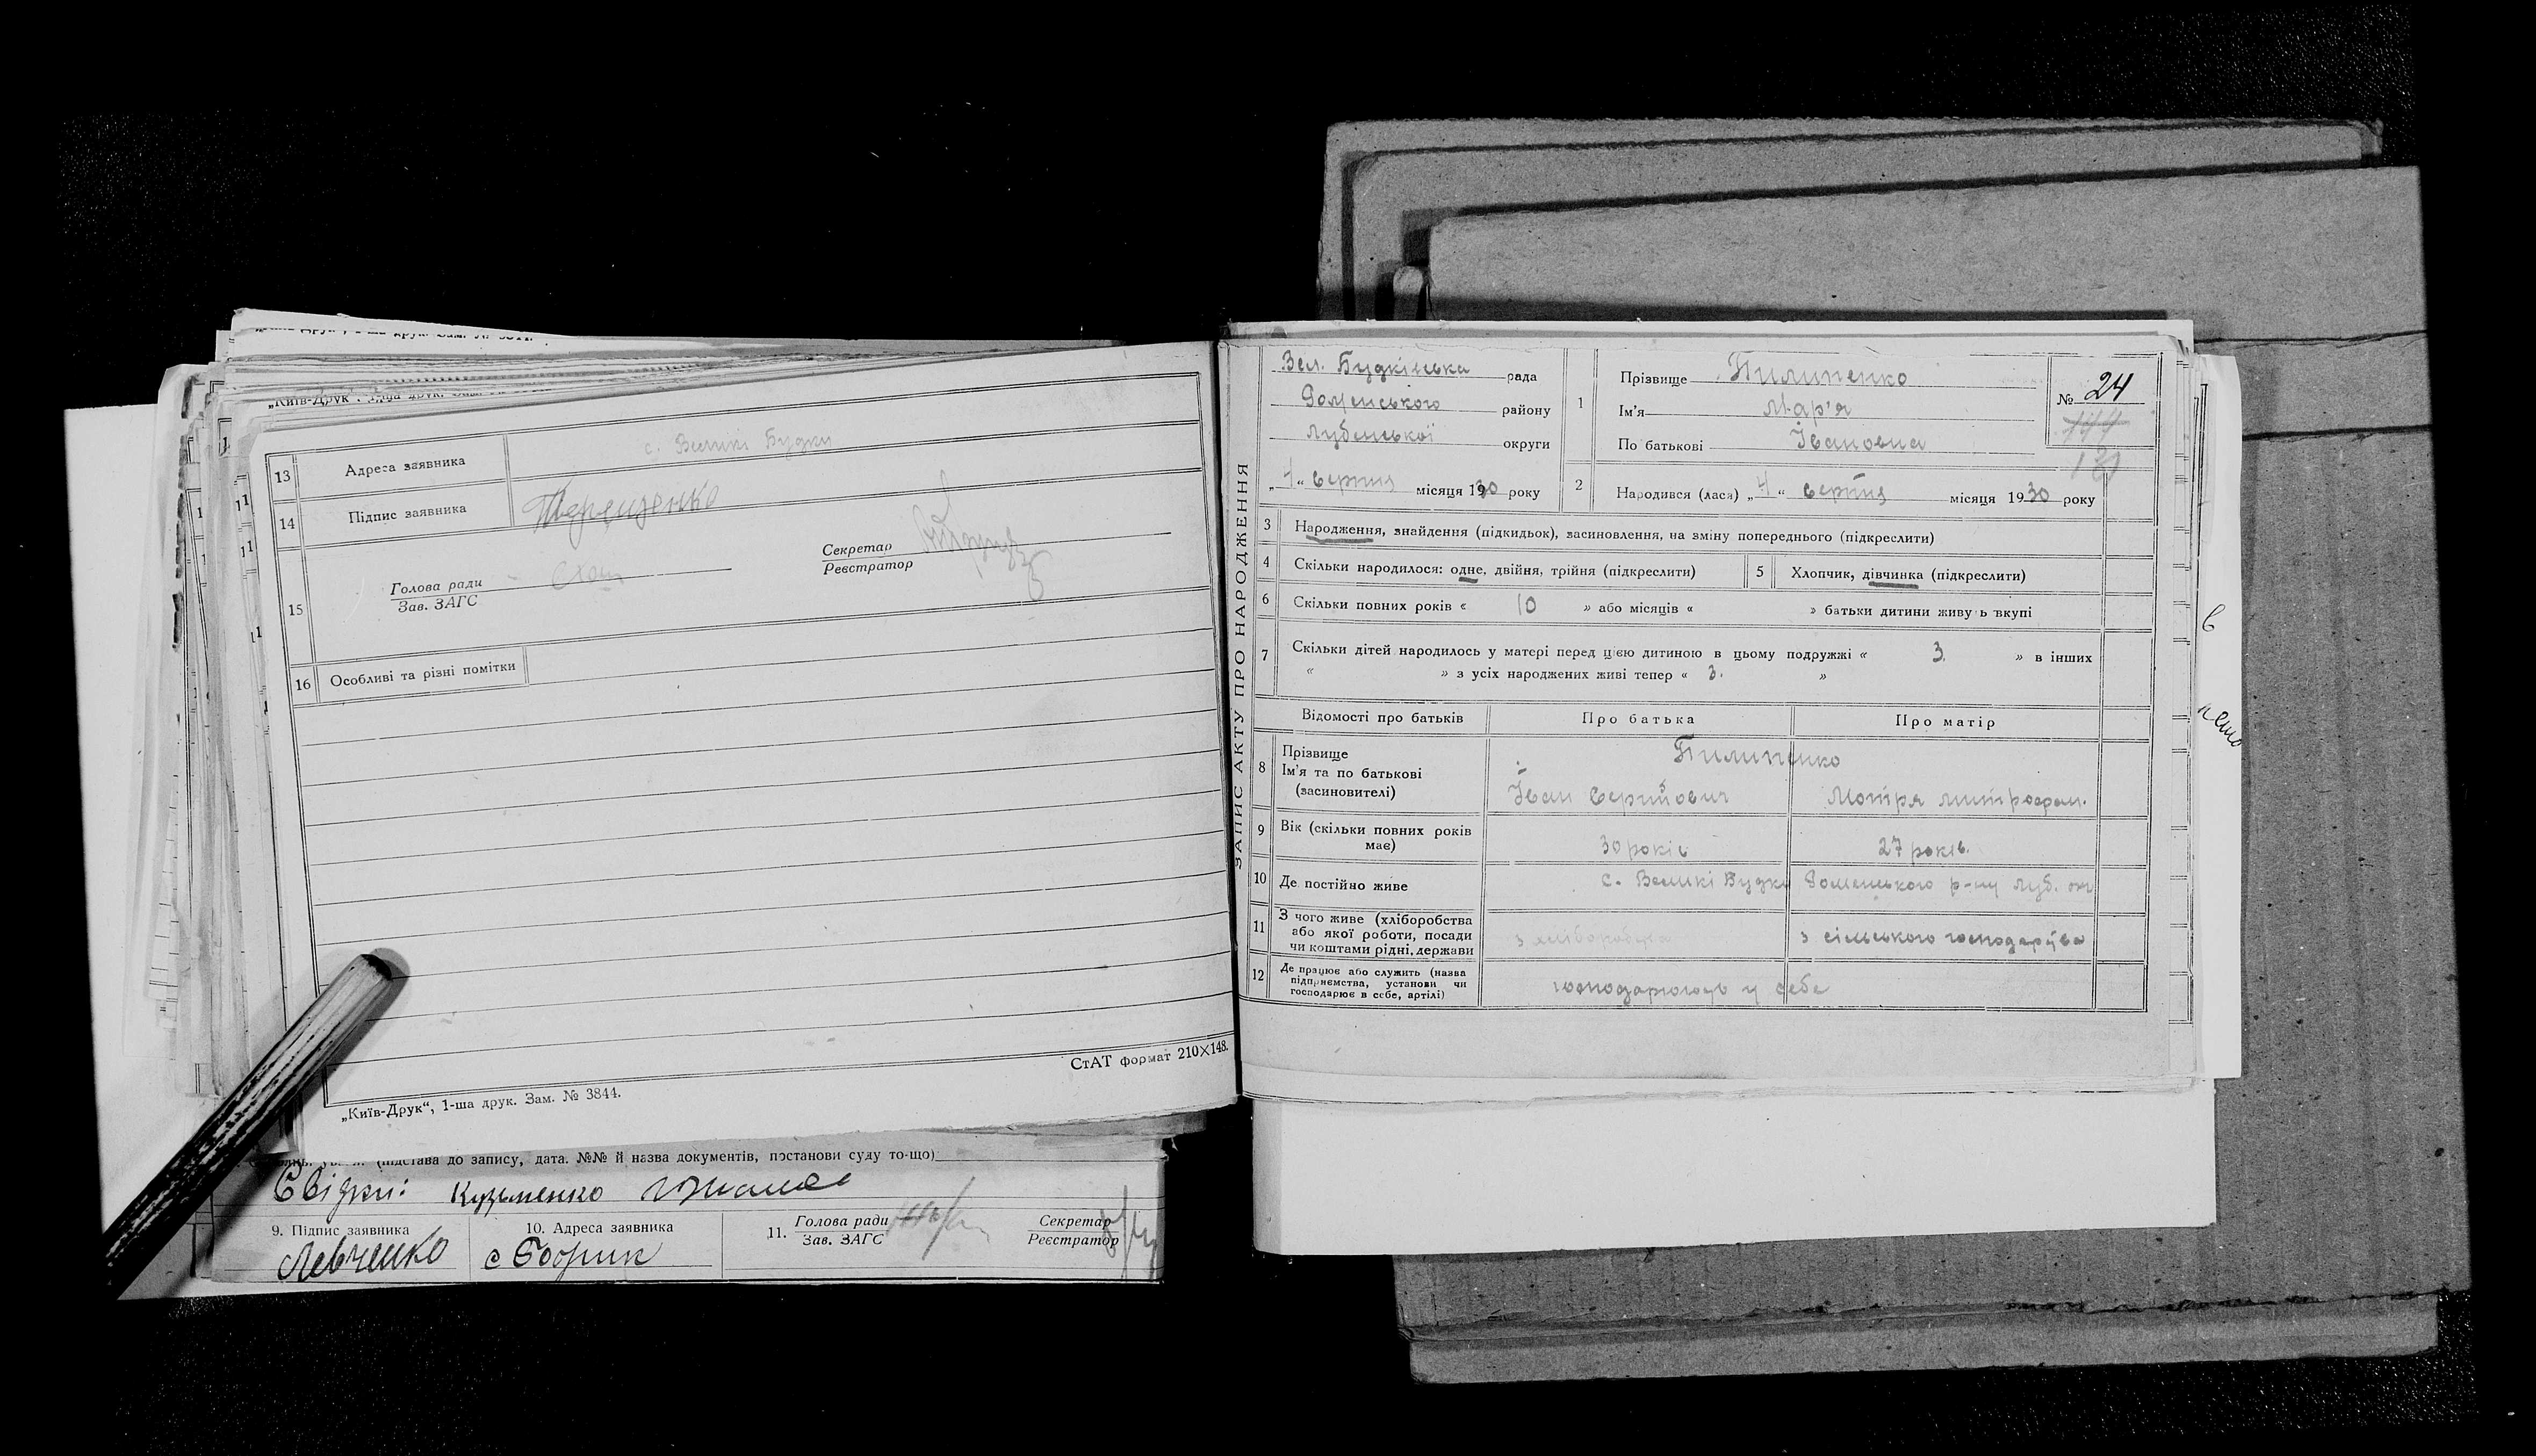 13 Адреса заявника с. Великі Будки
14 Підпис заявника Терещенко
15 Голова ради
Зав. ЗАГС
Секретар
Реєстратор
16 Особливі та різні помітки
СтАТ формат 210Х148.
„Київ-Друк“, 1-ша друк. Зам. № 3844.
(підстава до запису, дата. №№ й назва документів, постанови суду то-що)
Свідки: Кузьменко
9. Підпис заявника
Левченко
10. Адреса заявника
11. Голова ради
Зав. ЗАГС
Секретар
Реєстратор
ЗАПИС АКТУ ПРО НАРОДЖЕННЯ
Вел. Будківська рада
Роменського району
Лубенської округи
„4“ серпня місяця 1930 року
1 Прізвище Пилипенко
Ім'я Мар'я
По батькові Івановна
№ 24
2 Народився (лася) „4“ серпня місяця 1930 року
3 Народження, знайдення (підкидьок), засиновлення, на зміну попереднього (підкреслити)
4 Скільки народилося: одне, двійня, трійня (підкреслити)
5 Хлопчик, дівчинка (підкреслити)
6 Скільки повних років « 10 » або місяців « » батьки дитини живу ь вкупі
7 Скільки дітей народилось у матері перед цією дитиною в цьому подружжі « 3 » в інших
« » з усіх народжених живі тепер « 3. »
Відомості про батьків Про батька Про матір
8 Прізвище Пилипенко
Ім'я та по батькові
(засиновителі) Іван Мотря митрофан.
9 Вік (скільки повних років
має) 30 років 27 років.
10 Де постійно живе с. Великі Будки Роменського р-ну Луб. ок
11 З чого живе (хліборобства
або якої роботи, посади
чи коштами рідні, держави з хліборобства з сільського господарства
12 Де працює або служить (назва
підприємства, установи чи
господарює в себе, артілі) господарюють у себе